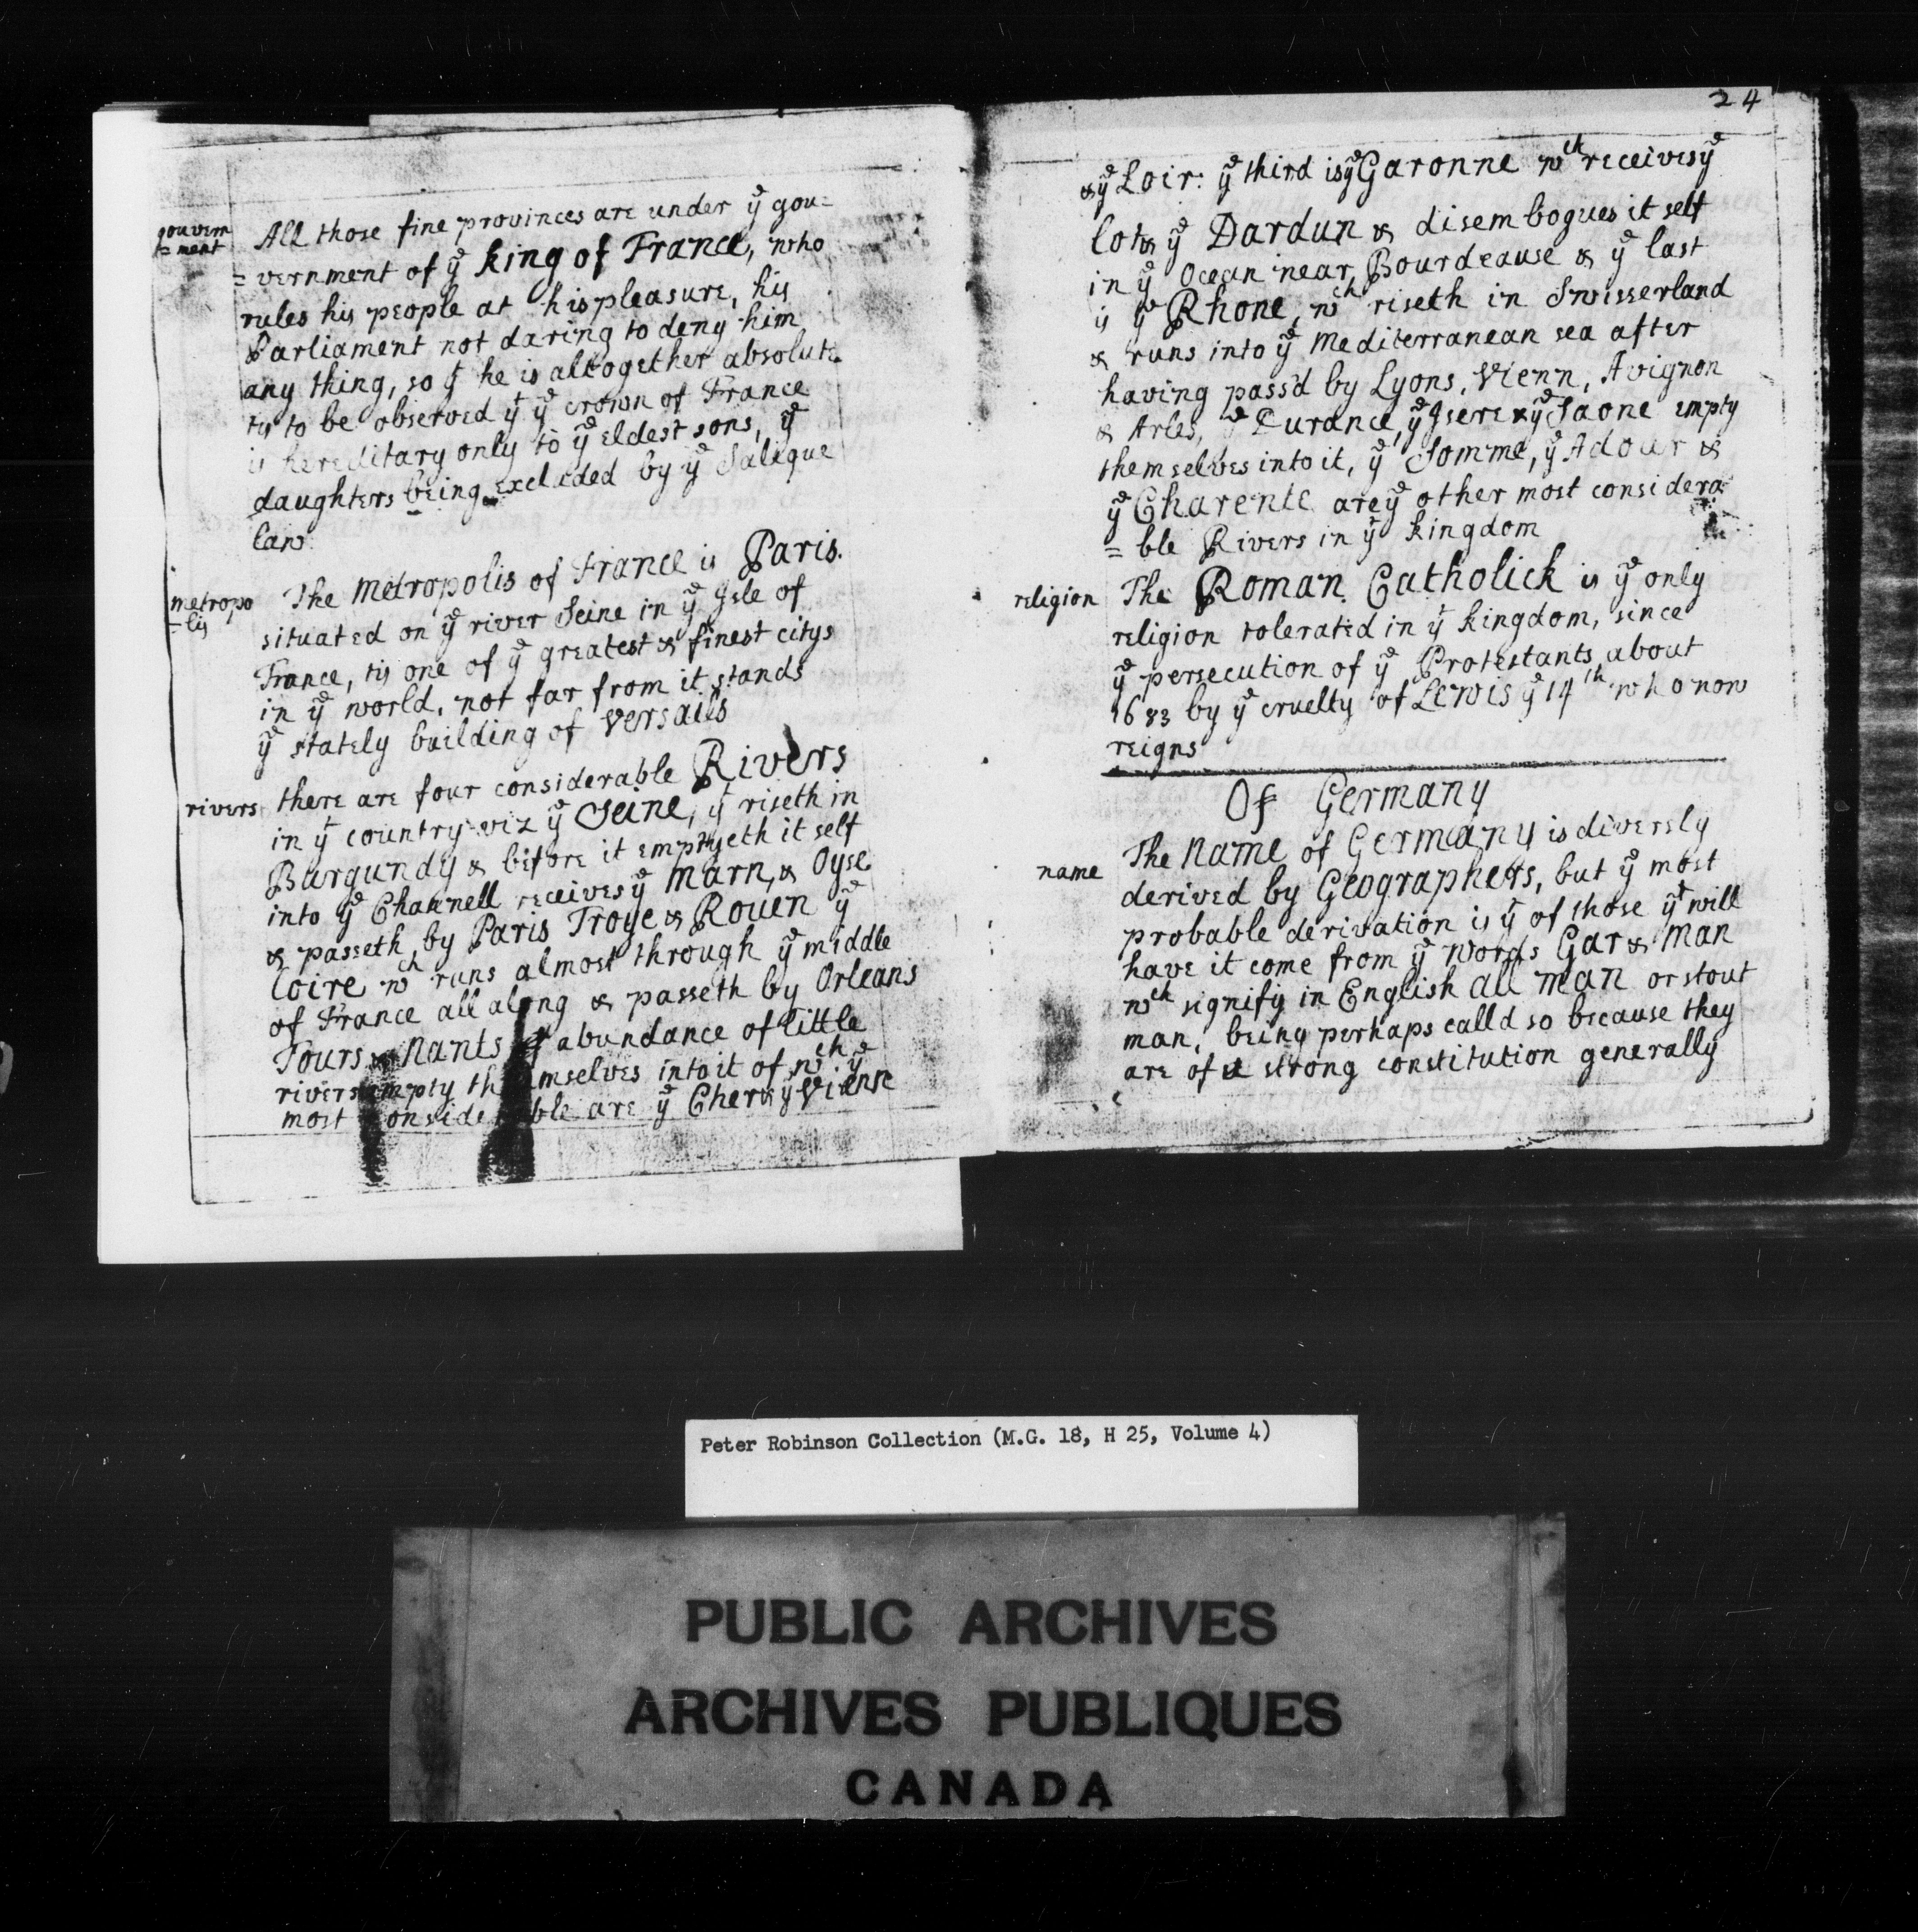 gouvern
=ment
All those fine provinces are under yᵉ gou=
=vernment of yᵉ king of France, who
rules his people at his pleasure, his
Parliament not daring to deny him
any thing, so yᵗ he is altogether absolute
tis to be observed yᵗ yᵉ crown of France
is hereditary only to yᵉ eldest sons, yᵉ
daughters being excluded by yᵉ Salique
law.
metropo
=lis
The metropolis of France is Paris.
situated on yᵉ river Seine in yᵉ Isle of
France, tis one of yᵉ greatest & finest citys
in yᵉ world, not far from it stands
yᵉ stately building of Versails
rivers
there are four considerable Rivers
in yᵗ country viz yᵉ Seine, yᵗ riseth in
Burgundy & before it emptyeth it self
into yᵉ Channell receives yᵉ Marn, & Oyse
& passeth by Paris Troye & Rouen yᵉ
Loire wᶜʰ runs almost through yᵉ middle
of France all along & passeth by Orleans
Tours & Nants abundance of little
rivers empty themselves into it of wᶜʰ yᵉ
most considerable are yᵉ Cher & yᵉ Vienne
24
& yᵉ Loir: yᵉ third is yᵉ Garonne wᶜʰ receives yᵉ
lot & yᵉ Dardun & disembogues it self
in yᵉ Ocean near Bourdeause & yᵉ last
is yᵉ Rhone, wᶜʰ riseth in Swisserland
& runs into yᵉ Mediterranean sea after
having pass'd by Lyons, Vienn, Avignon
& Arles, yᵉ Durance, yᵉ Isere & yᵉ Saone empty
themselves into it, yᵉ Somme, yᵉ Adour &
yᵉ Charente are yᵉ other most considera
=ble Rivers in yᵗ kingdom
religion
The Roman Catholick is yᵉ only
religion tolerated in yᵗ kingdom, since
yᵉ persecution of yᵉ Protestants about
1683 by yᵉ cruelty of Lewis yᵉ 14ᵗʰ who now
reigns
Of Germany
name
The Name of Germany is diversly
derived by Geographers, but yᵉ most
probable derivation is yᵗ of those yᵗ will
have it come from yᵉ words Gar & Man
wᶜʰ signify in English all man or stout
man, being perhaps calld so because they
are of a strong constitution generally
Peter Robinson Collection (M.G. 18, H 25, Volume 4)
PUBLIC ARCHIVES
ARCHIVES PUBLIQUES
CANADA